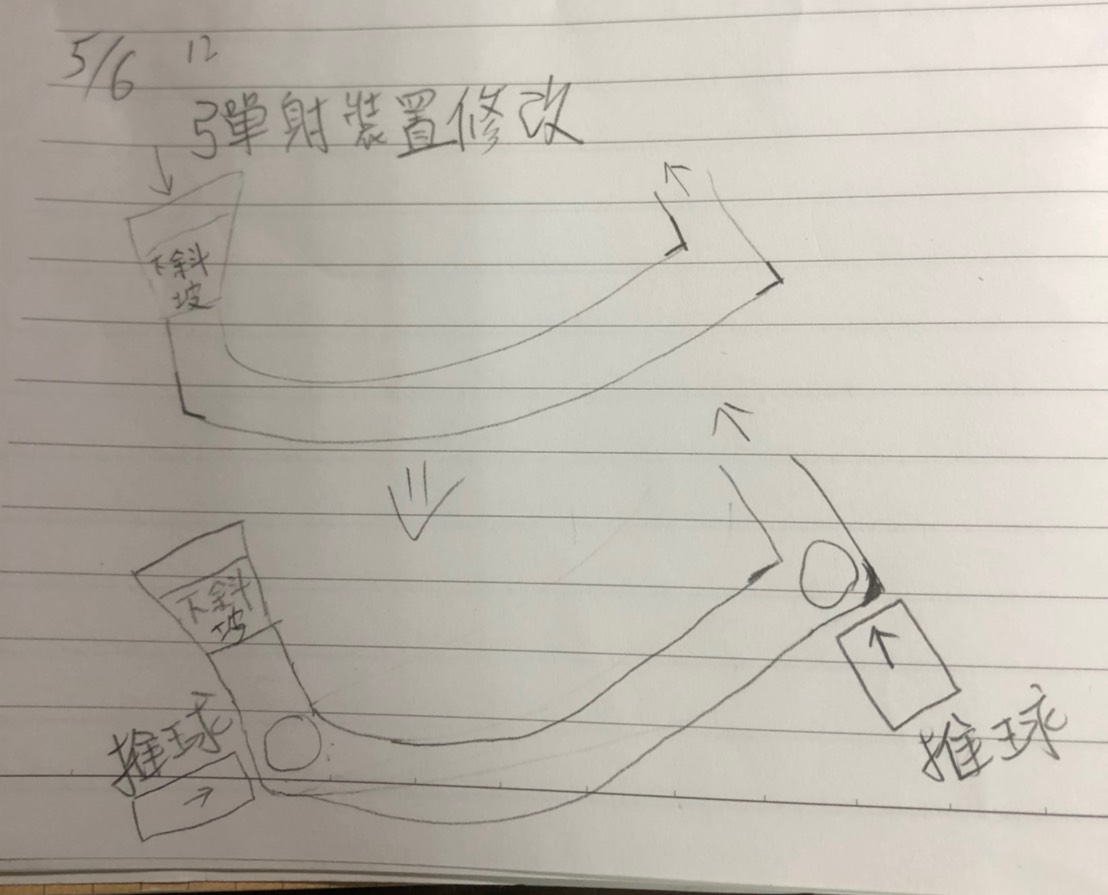 5/6 12
彈射裝置修改
下斜
坡
下斜
坡
推球
推球